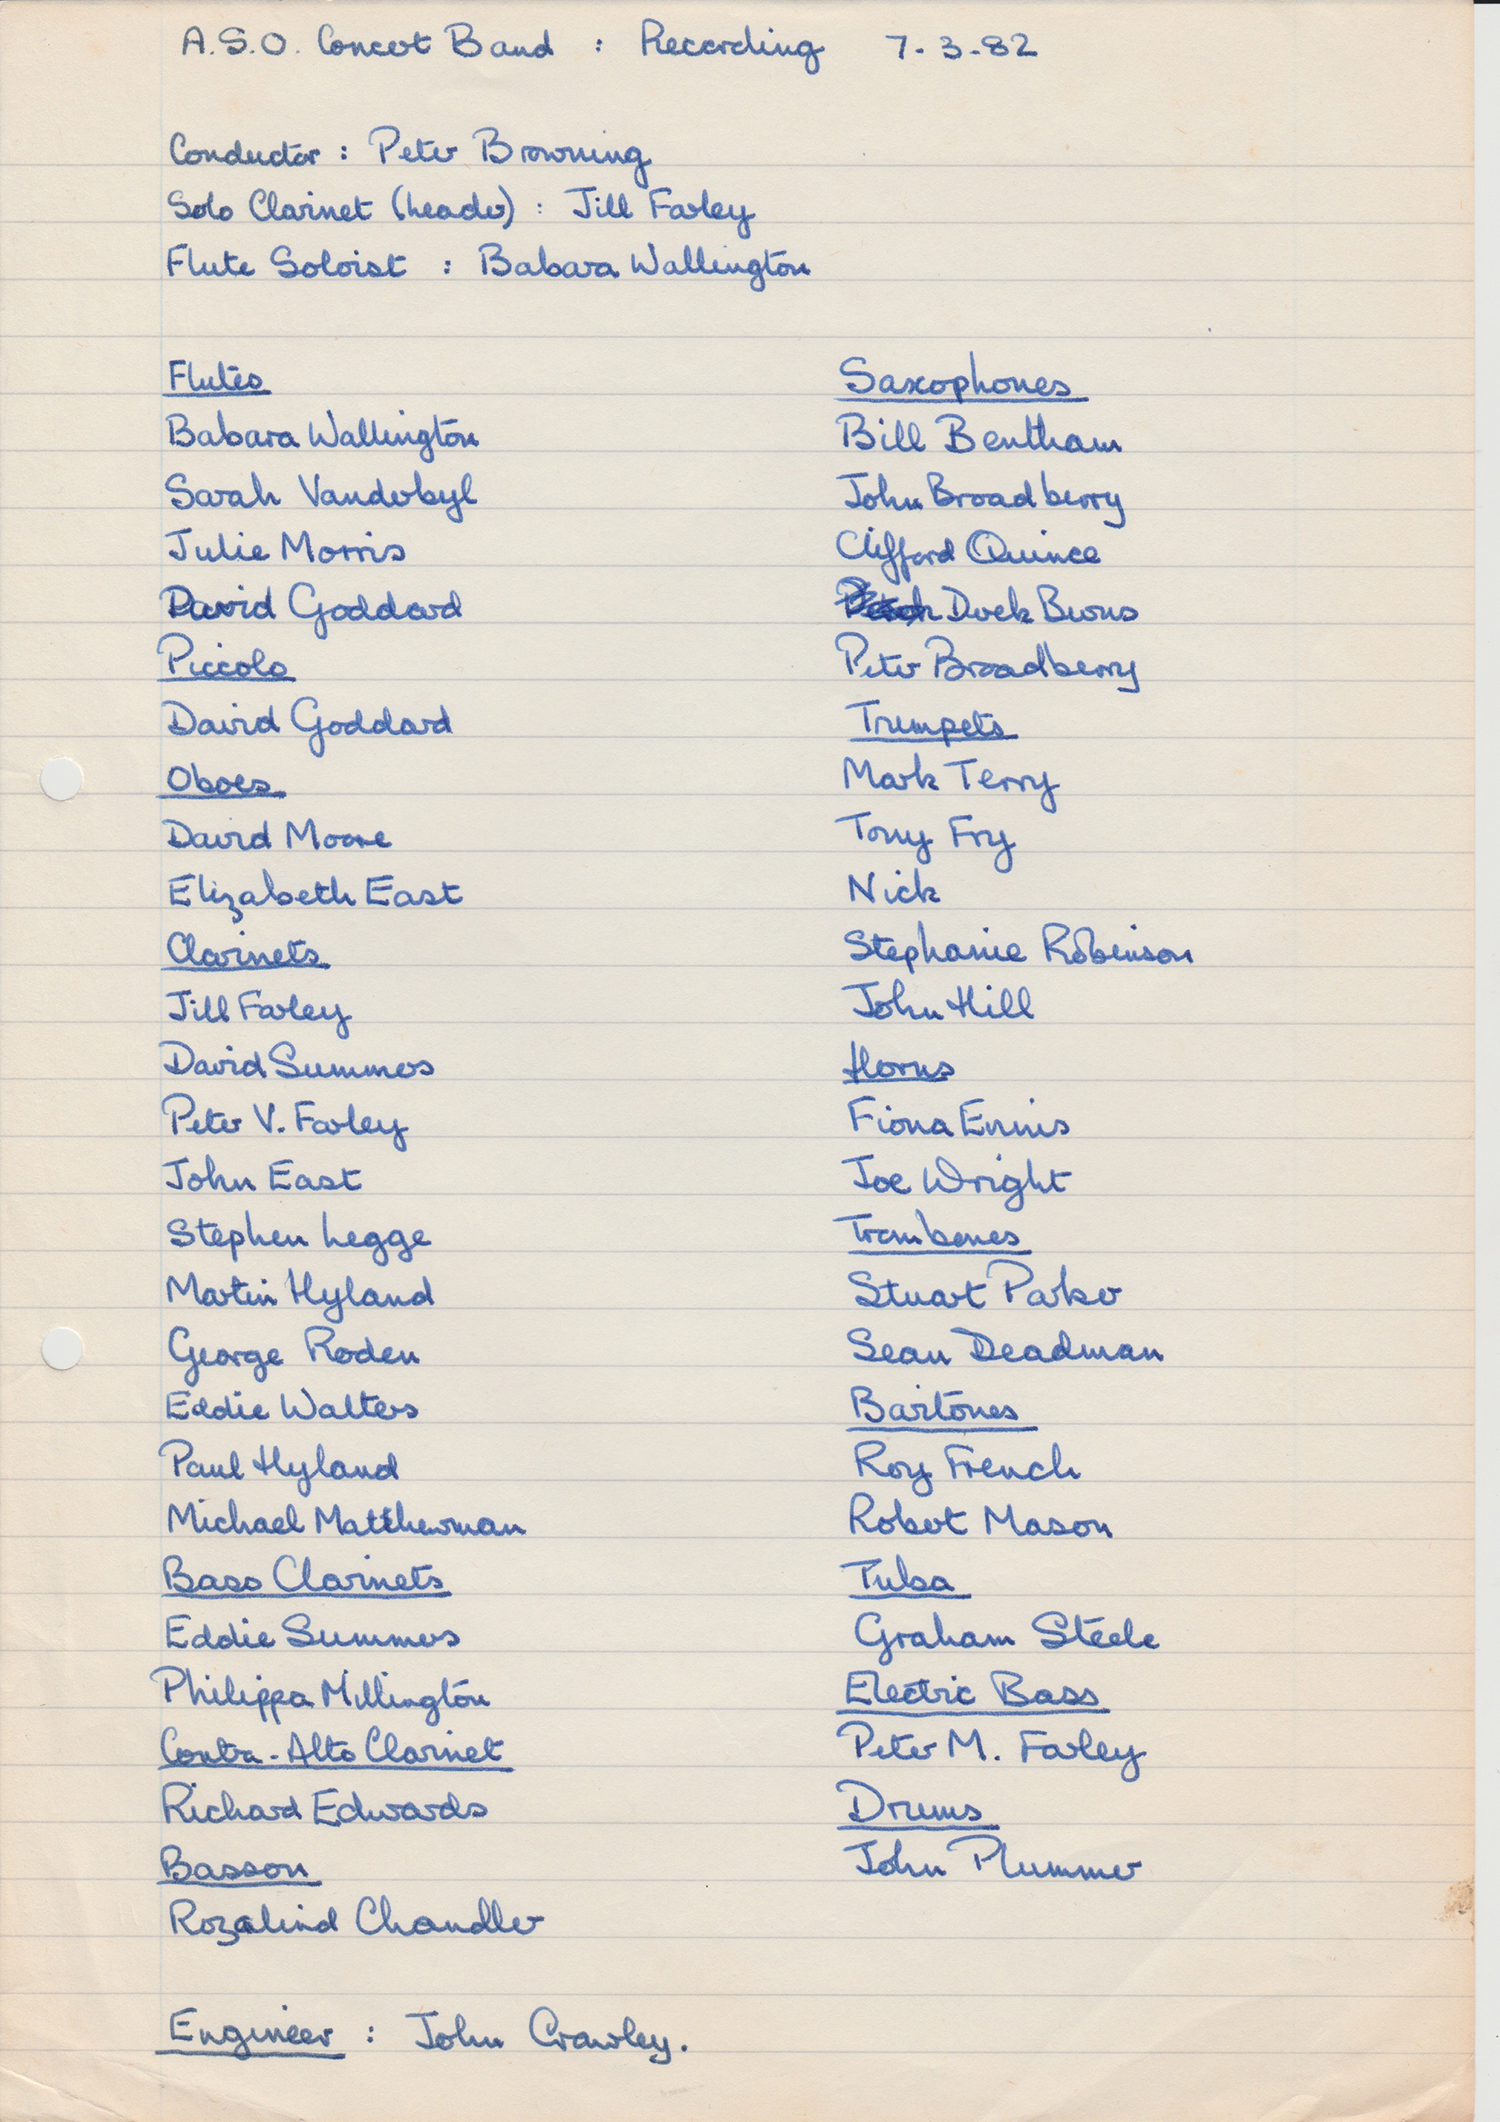 A.S.O. Concert Band : Recording 7-3-82
Conductor : Peter Browning
Solo Clarinet (leader) : Jill Farley
Flute Soloist : Babara Wallington
Flutes
Babara Wallington
Sarah Vanderbyl
Julie Morris
David Goddard
Piccolo
David Goddard
Oboes
David Moore
Elizabeth East
Clarinets
Jill Farley
David Summers
Peter V. Farley
John East
Stephen Legge
Martin Hyland
George Roden
Eddie Walters
Paul Hyland
Michael Mattherman
Bass Clarinets
Eddie Summers
Philippa Millington
Contra-Alto Clarinet
Richard Edwards
Basson
Rozalind Chandler
Saxophones
Bill Bentham
John Broadberry
Clifford Quince
Derek Burns
Peter Broadberry
Trumpets
Mark Terry
Tony Fry
Nick
Stephanie Robinson
John Hill
Horns
Fiona Ennis
Joe Wright
Trombones
Stuart Parker
Sean Deadman
Baritones
Roy French
Robert Mason
Tuba
Graham Steele
Electric Bass
Peter M. Farley
Drums
John Plummer
Engineer : John Crawley.